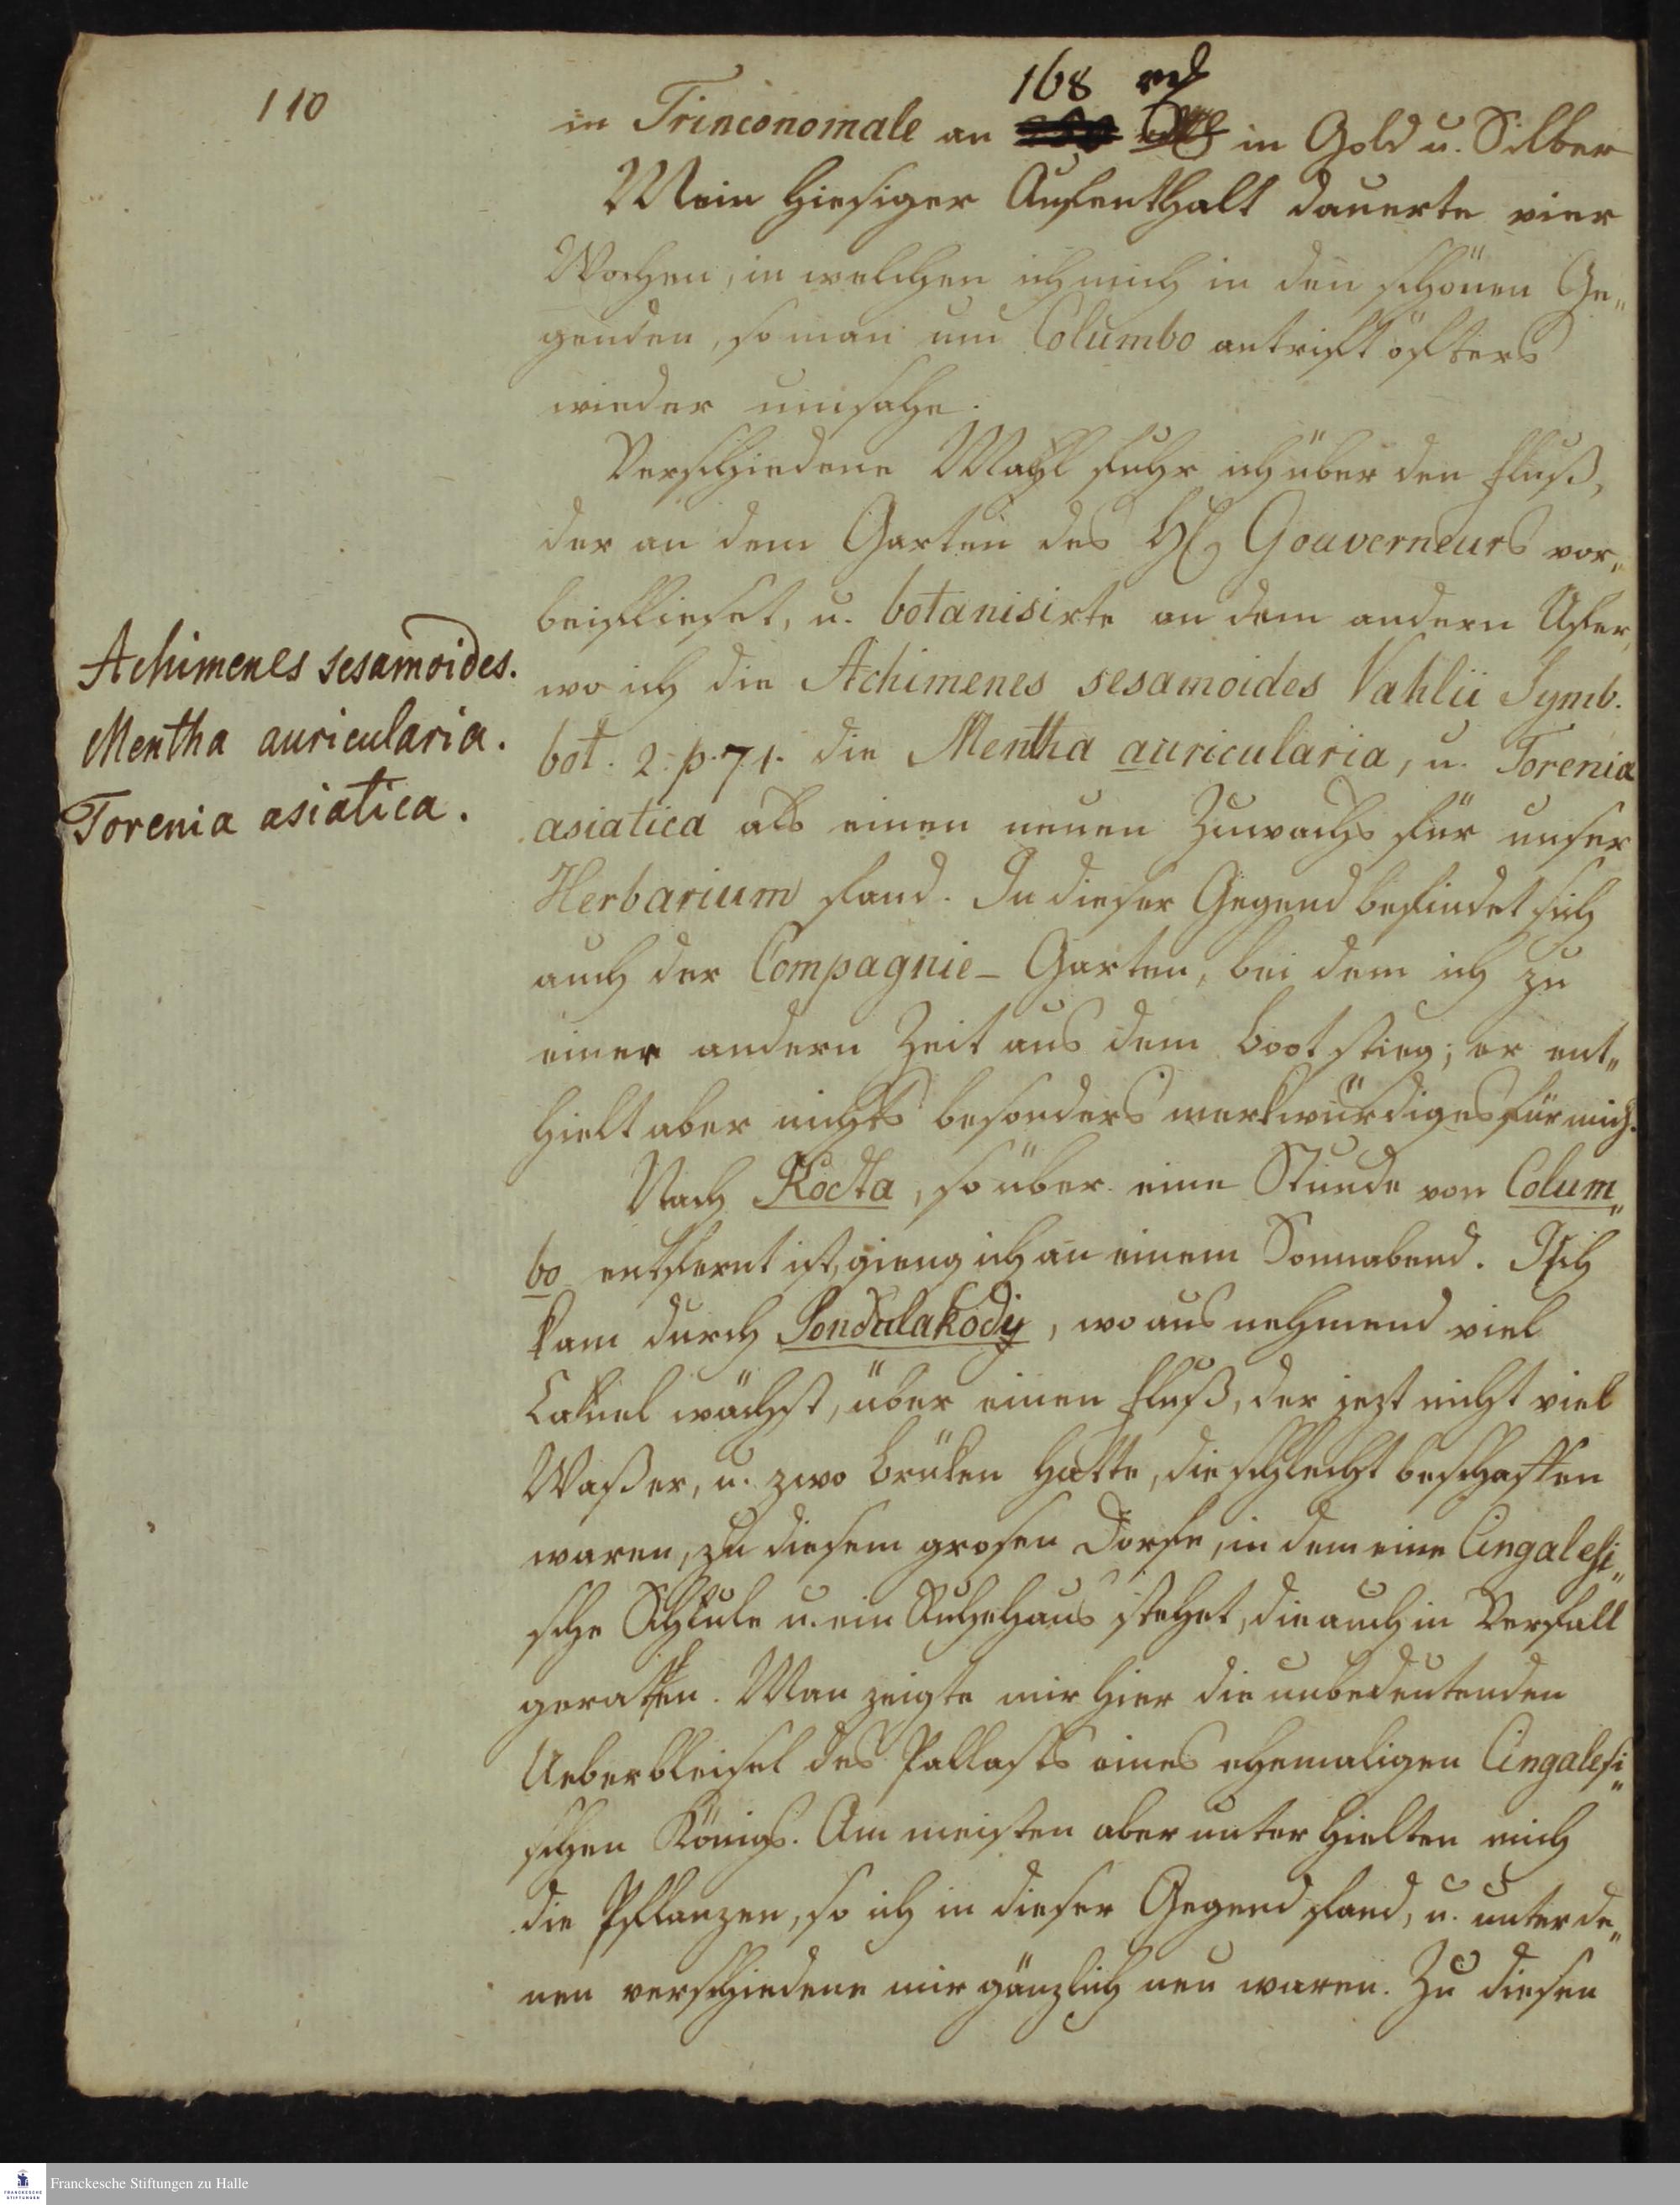 110
168 rd
in Trinconomale an in Gold u. Silber
Mein hiesiger Aufenthalt dauerte vier
Wochen, in welchen ich mich in den schönen Ge„
genden, so man um Columbo antrift öfters
wieder umsahe.
Verschiedene Mahl fuhr ich über den Fluß,
der an dem Garten des H. Gouverneurs vor„
beiflieset, u. botanisirte an dem andern Ufer,
wo ich die Achimenes sesamoides Vahlii Symb.
bot. 2. p. 71. die Mentha auricularia, u. Torenia
asiatica als einen neuen Zuwachs für unser
Herbarium fand. In dieser Gegend befindet sich
auch der Compagnie-Garten, bei dem ich zu
einer andern Zeit aus dem Boot stieg; er ent„
hielt aber nichts besonders merkwürdiges für mich.
Nach Kotta, so über eine Stunde von Colum„
bo entfernt ist, gieng ich an einem Sonnabend. Ich
kam durch, wo ausnehmend viel
Canel wächst, über einen Fluß, der jezt nicht viel
Waßer, u. zwo Brüken hatte, die schlecht beschaffen
waren, zu diesem grosen Dorfe, in dem eine Cingalesi„
sche Schule u. ein Ruhehaus stehet, die auch in Verfall
gerathen. Man zeigte mir hier die unbedeutenden
Ueberbleisel des Pallasts eines ehemaligen Cingalesi„
schen Königs. Am meisten aber unterhielten mich
die Pflanzen, so ich in dieser Gegend fand, u. unter de„
nen verschiedene mir gänzlich neu waren. Zu diesen
Achimenes sesamoides.
Mentha auricularia.
Torenia asiatica.
FRANCKESCHE
STIFTUNGEN
Franckesche Stiftungen zu Halle